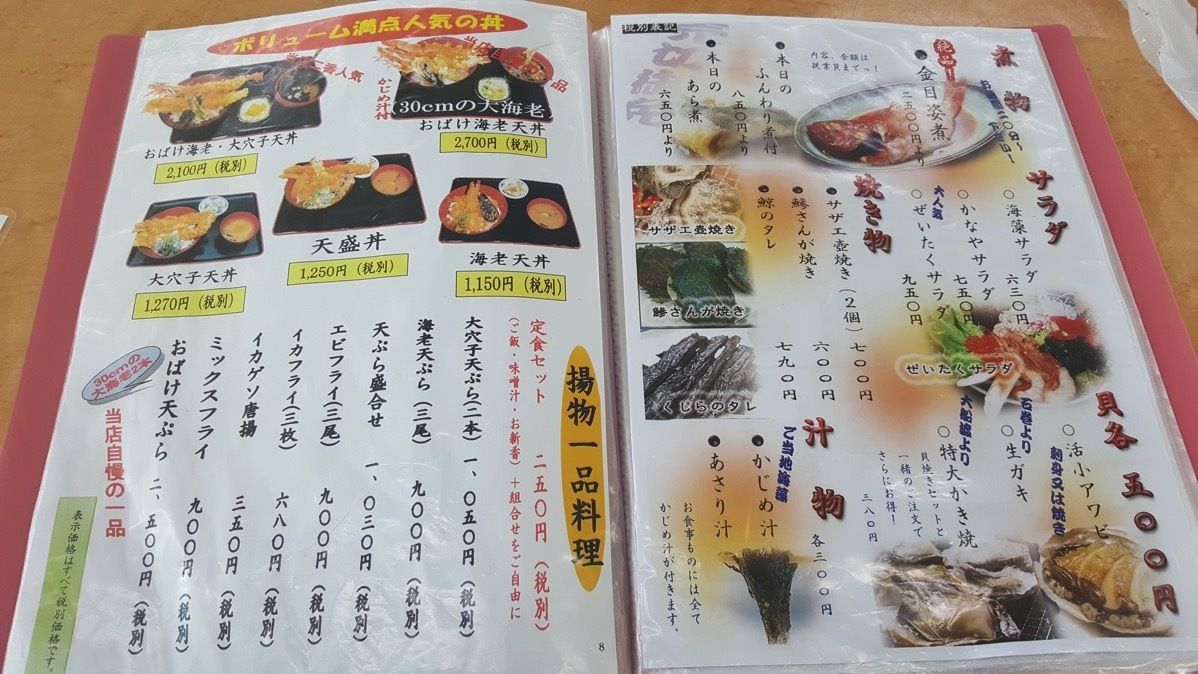 ボリューム満点人気の丼
かじめ汁付
30cmの大海老
おばけ海老・大穴子天丼
2,100円（税別）
おばけ海老天丼
2,700円（税別）
大穴子天丼
1,270円（税別）
天盛丼
1,250円（税別）
海老天丼
1,150円（税別）
揚物一品料理
定食セット 二五〇円（税別）
（ご飯・味噌汁・お新香）＋組合せをご自由に
大穴子天ぷら（二本） 一、〇五〇円（税別）
海老天ぷら（三尾） 九〇〇円（税別）
天ぷら盛合せ 一、〇三〇円（税別）
エビフライ（三尾） 九〇〇円（税別）
イカフライ（三枚） 六八〇円（税別）
イカゲソ唐揚 三五〇円（税別）
ミックスフライ 九〇〇円（税別）
おばけ天ぷら 二、五〇〇円（税別）
30cmの
大海老2本
当店自慢の一品
表示価格はすべて税別価格です。
8
税別表記
煮物
絶品！
●金目姿煮 二五〇〇円より
内容、金額は
従業員までっ！
●本日の
ふんわり煮付 八五〇円より
●本日の
あら煮 六五〇円より
サラダ
○海藻サラダ 六三〇円
○かなやサラダ 七五〇円
大人気
○ぜいたくサラダ 九五〇円
ぜいたくサラダ
焼き物
●サザエ壺焼き（2個） 七〇〇円
●鯵さんが焼き 六〇〇円
●鯨のタレ 七九〇円
サザエ壺焼き
鯵さんが焼き
くじらのタレ
貝各 五〇〇円
○活小アワビ
刺身又は焼き
○生ガキ
石巻より
○特大かき焼
大船渡より
貝焼きセットと
一緒のご注文で
さらにお得！
三八〇円
汁物 各三〇〇円
ご当地海藻
●かじめ汁
●あさり汁
お食事ものには全て
かじめ汁が付きます。